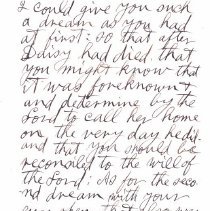 I could give you such
a dream as you had
at first; so that after
Daisy had died that
you might know that
it was foreknown
and determine by the
Lord to call her home
on the very day he did
and that you would be
reconciled to the will of
the Lord; As for the seco
nd dream with your